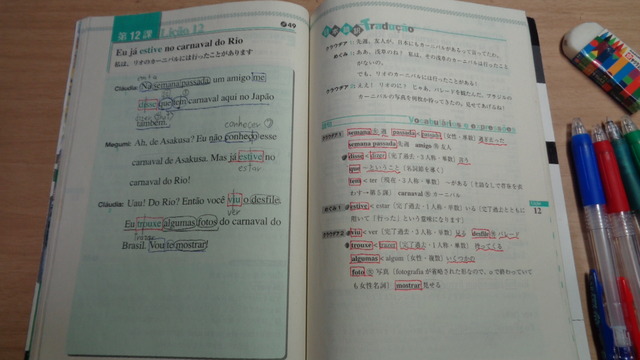 第12課 Lição 12
49
Eu já estive no carnaval do Rio
私は、リオのカーニバルには行ったことがあります
Cláudia: Na semana passada um amigo me
disse que tem carnaval aqui no Japão
também.
conhecer
Megumi: Ah, de Asakusa? Eu não conheço esse
carnaval de Asakusa. Mas já estive no
estar
carnaval do Rio!
Cláudia: Uau! Do Rio? Então você viu o desfile.
ver
Eu trouxe algumas fotos do carnaval do
Brasil. Vou te mostrar!
Tradução
クラウヂア: 先週、友人が、日本にもカーニバルがあるって言ってたわ。
めぐみ: ああ、浅草のね? 私は、その浅草のカーニバルは行ったこと
がないの。
でも、リオのカーニバルには行ったことがあるよ!
クラウヂア: ええ! リオのに? じゃあ、パレードを観たんだ。ブラジルの
カーニバルの写真を何枚か持ってきたの。見せてあげるね!
クラウヂア1
semana 週 passada < passado (女性・単数) 過ぎ去った
semana passada 先週 amigo 友人
disse < dizer (完了過去・3人称・単数) 言う
que ~ということ (名詞節を導く)
tem < ter (現在・3人称・単数) ~がある
carnaval カーニバル
めぐみ1
estive < estar (完了過去・1人称・単数) いる (完了過去とともに
用いて「行った」という意味になります)
12
クラウヂア2
viu < ver (完了過去・3人称・単数) 見る desfile パレード
trouxe < trazer (完了過去・1人称・単数) 持ってくる
algumas < algum (女性・複数) いくつかの
foto 写真 (fotografia が省略された形なので、o で終わっていて
も女性名詞) mostrar 見せる